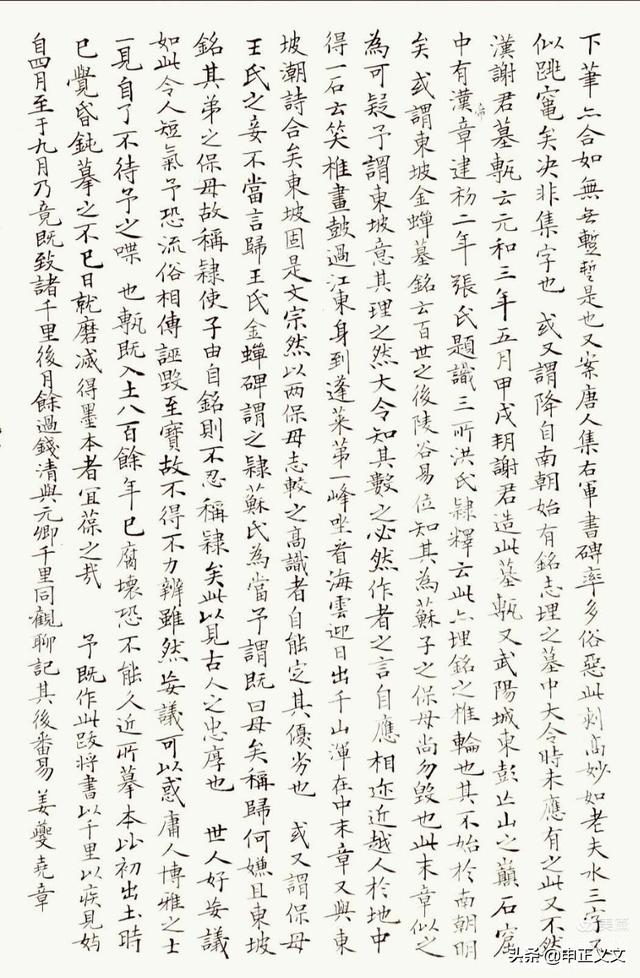 下筆亡合如無無蹔蹔是也又案唐人集右軍書碑率多俗惡此刻高妙如老夫水三字又
似跳竃矣决非集字也 或又謂降自南朝始有銘志埋之墓中大令時未應有之此又不然
漢謝君墓甎云元和三年五月甲戌朔謝君造此墓甎又武陽城東彭亡山之巔石窟
中有漢章帝建初二年張氏題識三所洪氏隸釋云此亡埋銘之椎輪也其不始於南朝明
矣或謂東坡金蟬墓銘云百世之後陵谷易位知其為蘇子之保母尚勿毀也此末章似之
為可疑予謂東坡意其理之然大令知其數之必然作者之言自應相迩近越人於地中
得一石云笑椎畫鼓過江東身到蓬萊第一峰坐看海雲迎日出千山渾在中末章又與東
坡潮詩合矣東坡固是文宗然以两保母志較之高識者自能定其優劣也 或又謂保母
王氏之妾不當言歸王氏金蟬碑謂之隸蘇氏為當予謂既曰母矣稱歸何嫌且東坡
銘其弟之保母故稱隸使子由自銘則不忍稱隸矣此以見古人之忠厚也 世人好妄議
如此令人短氣予恐流俗相傳誣毀至寶故不得不力辨雖然妄議可以惑庸人博雅之士
一見自了不待予之喋 也甎既入土八百餘年已腐壞恐不能久近所摹本比初出土時
已覺昏鈍摹之不已日就磨滅得墨本者宜葆之哉 予既作此跋將書以千里以疾見妨
自四月至于九月乃竟既致諸千里後月餘過錢清與元卿千里同觀聊記其後番昜姜夔堯章
美篇
头条 @申正义文